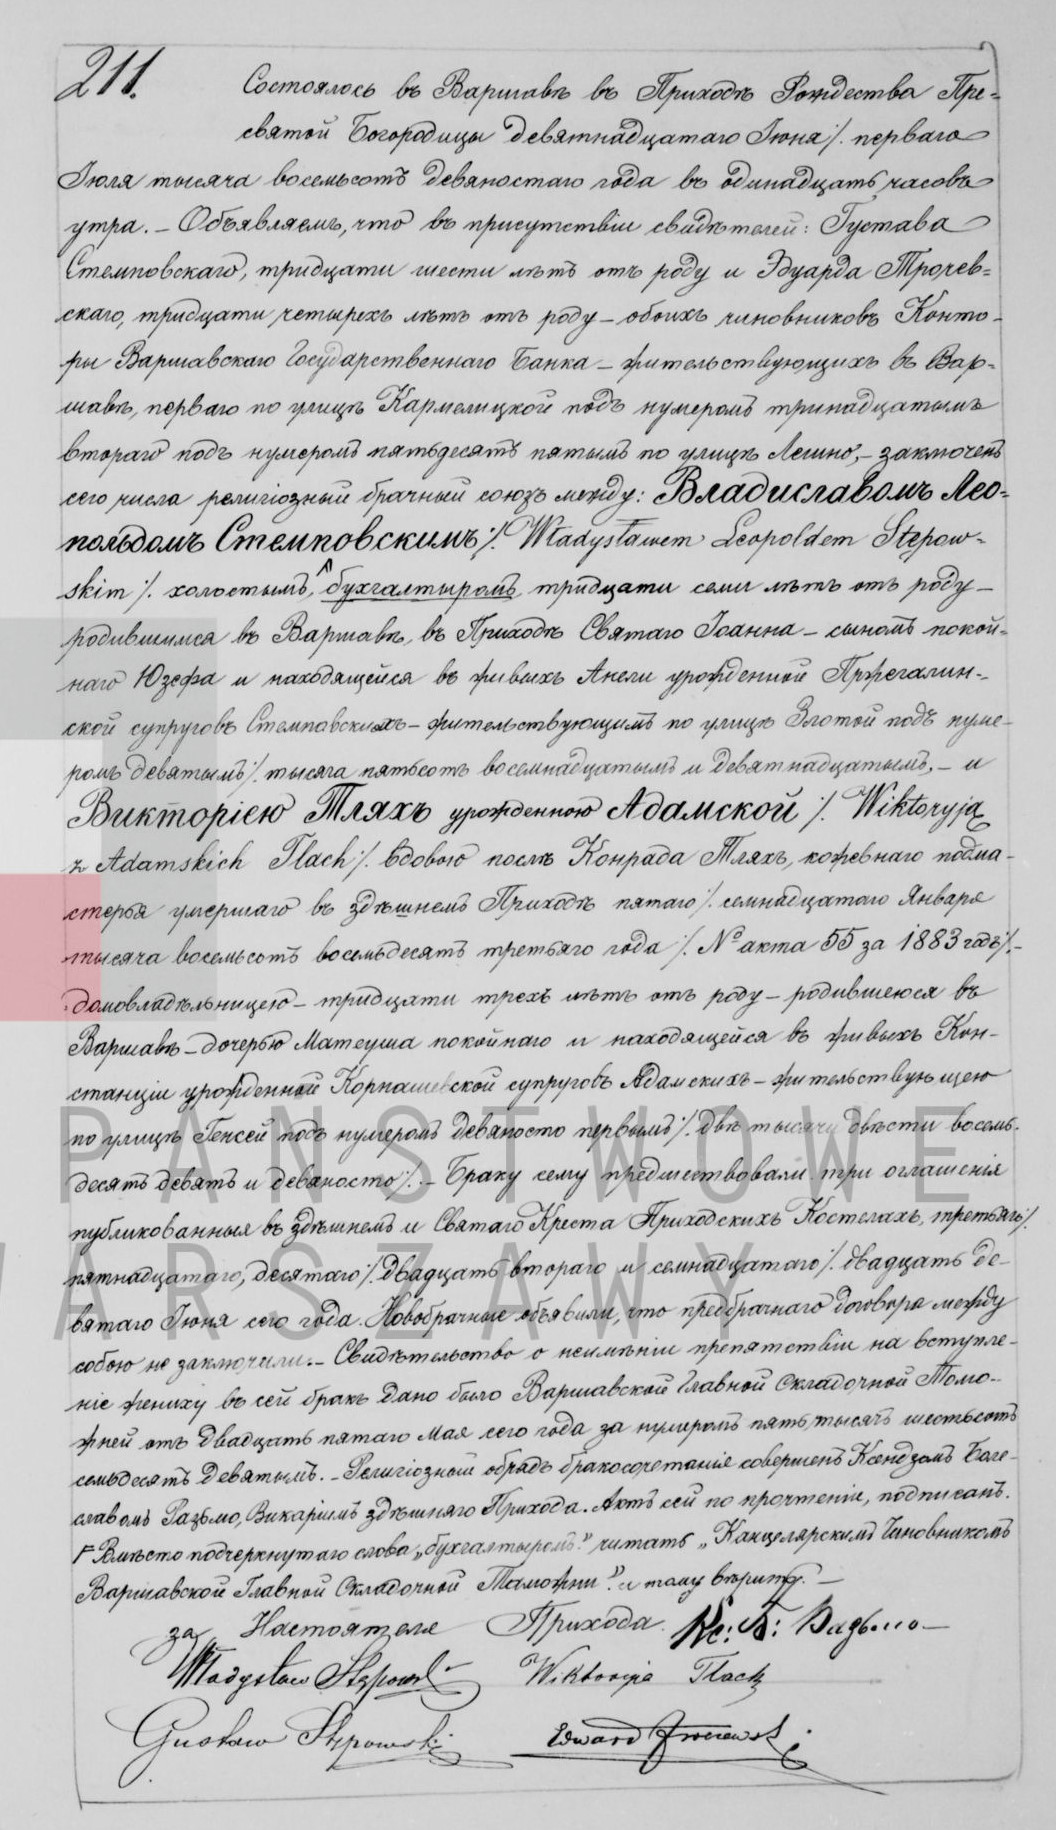 211.
Состоялось въ Варшавѣ въ Приходѣ Рождества Пре-
святой Богородицы девятнадцатаго Іюня /. перваго
Іюля тысяча восемьсотъ девяностаго года въ одинадцать часовъ
утра. – Объявляемъ, что въ присутствіи свидѣтелей: Густава
Стемповскаго, тридцати шести лѣтъ отъ роду и Эдуарда Трочев-
скаго, тридцати четырехъ лѣтъ отъ роду – обоихъ чиновниковъ Конто-
ры Варшавскаго Государственнаго Банка – жительствующихъ въ Вар-
шавѣ, перваго по улицѣ Кармелицкой подъ нумеромъ тринадцатымъ
втораго подъ нумеромъ пятьдесятъ пятымъ по улицѣ Лешно, – заключенъ
сего числа религіозный брачный союзъ между: Владиславомъ Лео-
польдомъ Стемповскимъ /. Władysławem Leopoldem Stępow-
skim /. холостымъ, бухгалтыромъ, тридцати семи лѣтъ отъ роду –
родившимся въ Варшавѣ, въ Приходѣ Святаго Іоанна – сыномъ покой-
наго Юзефа и находящейся въ живыхъ Анели урожденной Пржегалин-
ской супруговъ Стемповскихъ – жительствующимъ по улицѣ Злотой подъ нуме-
ромъ девятымъ /. тысяча пятьсотъ восемнадцатымъ и девятнадцатымъ, – и
Викторіею Тляхъ урожденною Адамской /. Wiktoryją
z Adamskich Tlach /. вдовою послѣ Конрада Тляхъ, кожевнаго подма-
стерья умершаго въ здѣшнемъ Приходѣ пятаго /. семнадцатаго Января
тысяча восемьсотъ восемьдесятъ третьяго года /. № акта 55 за 1883 годъ /. –
домовладѣльницею – тридцати трехъ лѣтъ отъ роду – родившеюся въ
Варшавѣ – дочерью Матеуша покойнаго и находящейся въ живыхъ Кон-
станціи урожденной Корнашевской супруговъ Адамскихъ – жительствующею
по улицѣ Генсей подъ нумеромъ девяносто первымъ /. двѣ тысячи двѣсти восемь-
десятъ девять и девяносто /. – Браку сему предшествовали три оглашенія
публикованныя въ здѣшнемъ и Святаго Креста Приходскихъ Костелахъ, третьяго /.
пятнадцатаго, десятаго /. двадцать втораго и семнадцатаго /. двадцать де-
вятаго Іюня сего года. Новобрачные объявили, что предбрачнаго договора между
собою не заключили. – Свидѣтельство о неимѣніи препятствіи на вступле-
ніе жениху въ сей бракъ дано было Варшавской Главной Складочной Тамо-
жней отъ двадцать пятаго Мая сего года за нумеромъ пять тысячъ шестьсотъ
семьдесятъ девятымъ. – Религіозный обрядъ бракосочетанія совершенъ Ксендзомъ Боле-
славомъ Разьмо, Викаріемъ здѣшняго Прихода. Актъ сей по прочтеніи, подписанъ.
Вмѣсто подчеркнутаго слова „бухгалтыромъ" читать „Канцелярскимъ Чиновникомъ
Варшавской Главной Складочной Таможни" и тому вѣрить. –
за Настоятеля Прихода Кс: Б:
Władysław Stępowski Wiktorija Tlach
Gustaw Stępowski Edward
PAŃSTWOWE
WARSZAWY